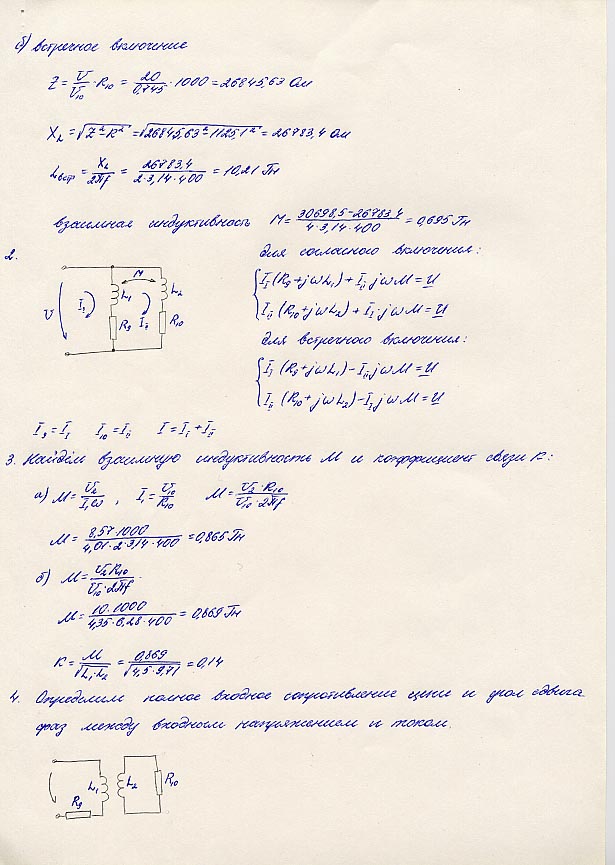 б) встречное включение
Z = U/U₁₀ · R₁₀ = 20/0,745 · 1000 = 26845,63 Ом
X_L = √(Z² − R²) = √(26845,63² − 1125,1²) = 26783,4 Ом
L встр = X_L/2πf = 26783,4/(2·3,14·400) = 10,21 Гн
взаимная индуктивность M = (30698,5 − 26783,4)/(4·3,14·400) = 0,695 Гн
2.
для согласного включения:
M
L₁ L₂
U I_I I_II
R₉ R₁₀
İ_I (R₉ + jωL₁) + İ_II jωM = U
İ_II (R₁₀ + jωL₂) + İ_I jωM = U
для встречного включения:
İ_I (R₉ + jωL₁) − İ_II jωM = U
İ_II (R₁₀ + jωL₂) − İ_I jωM = U
İ₉ = İ_I İ₁₀ = İ_II İ = İ_I + İ_II
3. Найдём взаимную индуктивность M и коэффициент связи K:
а) M = U₂/I₁ω , I₁ = U₁₀/R₁₀ M = U₂·R₁₀/U₁₀·2πf
M = 8,57·1000/(4,01·2·3,14·400) = 0,865 Гн
б) M = U₂R₁₀/U₁₀·2πf
M = 10·1000/(4,35·6,28·400) = 0,869 Гн
K = M/√(L₁·L₂) = 0,869/√(4,5·9,71) = 0,14
4. Определим полное входное сопротивление цепи и угол сдвига
фаз между входным напряжением и током.
L₁ L₂ R₁₀
R₉